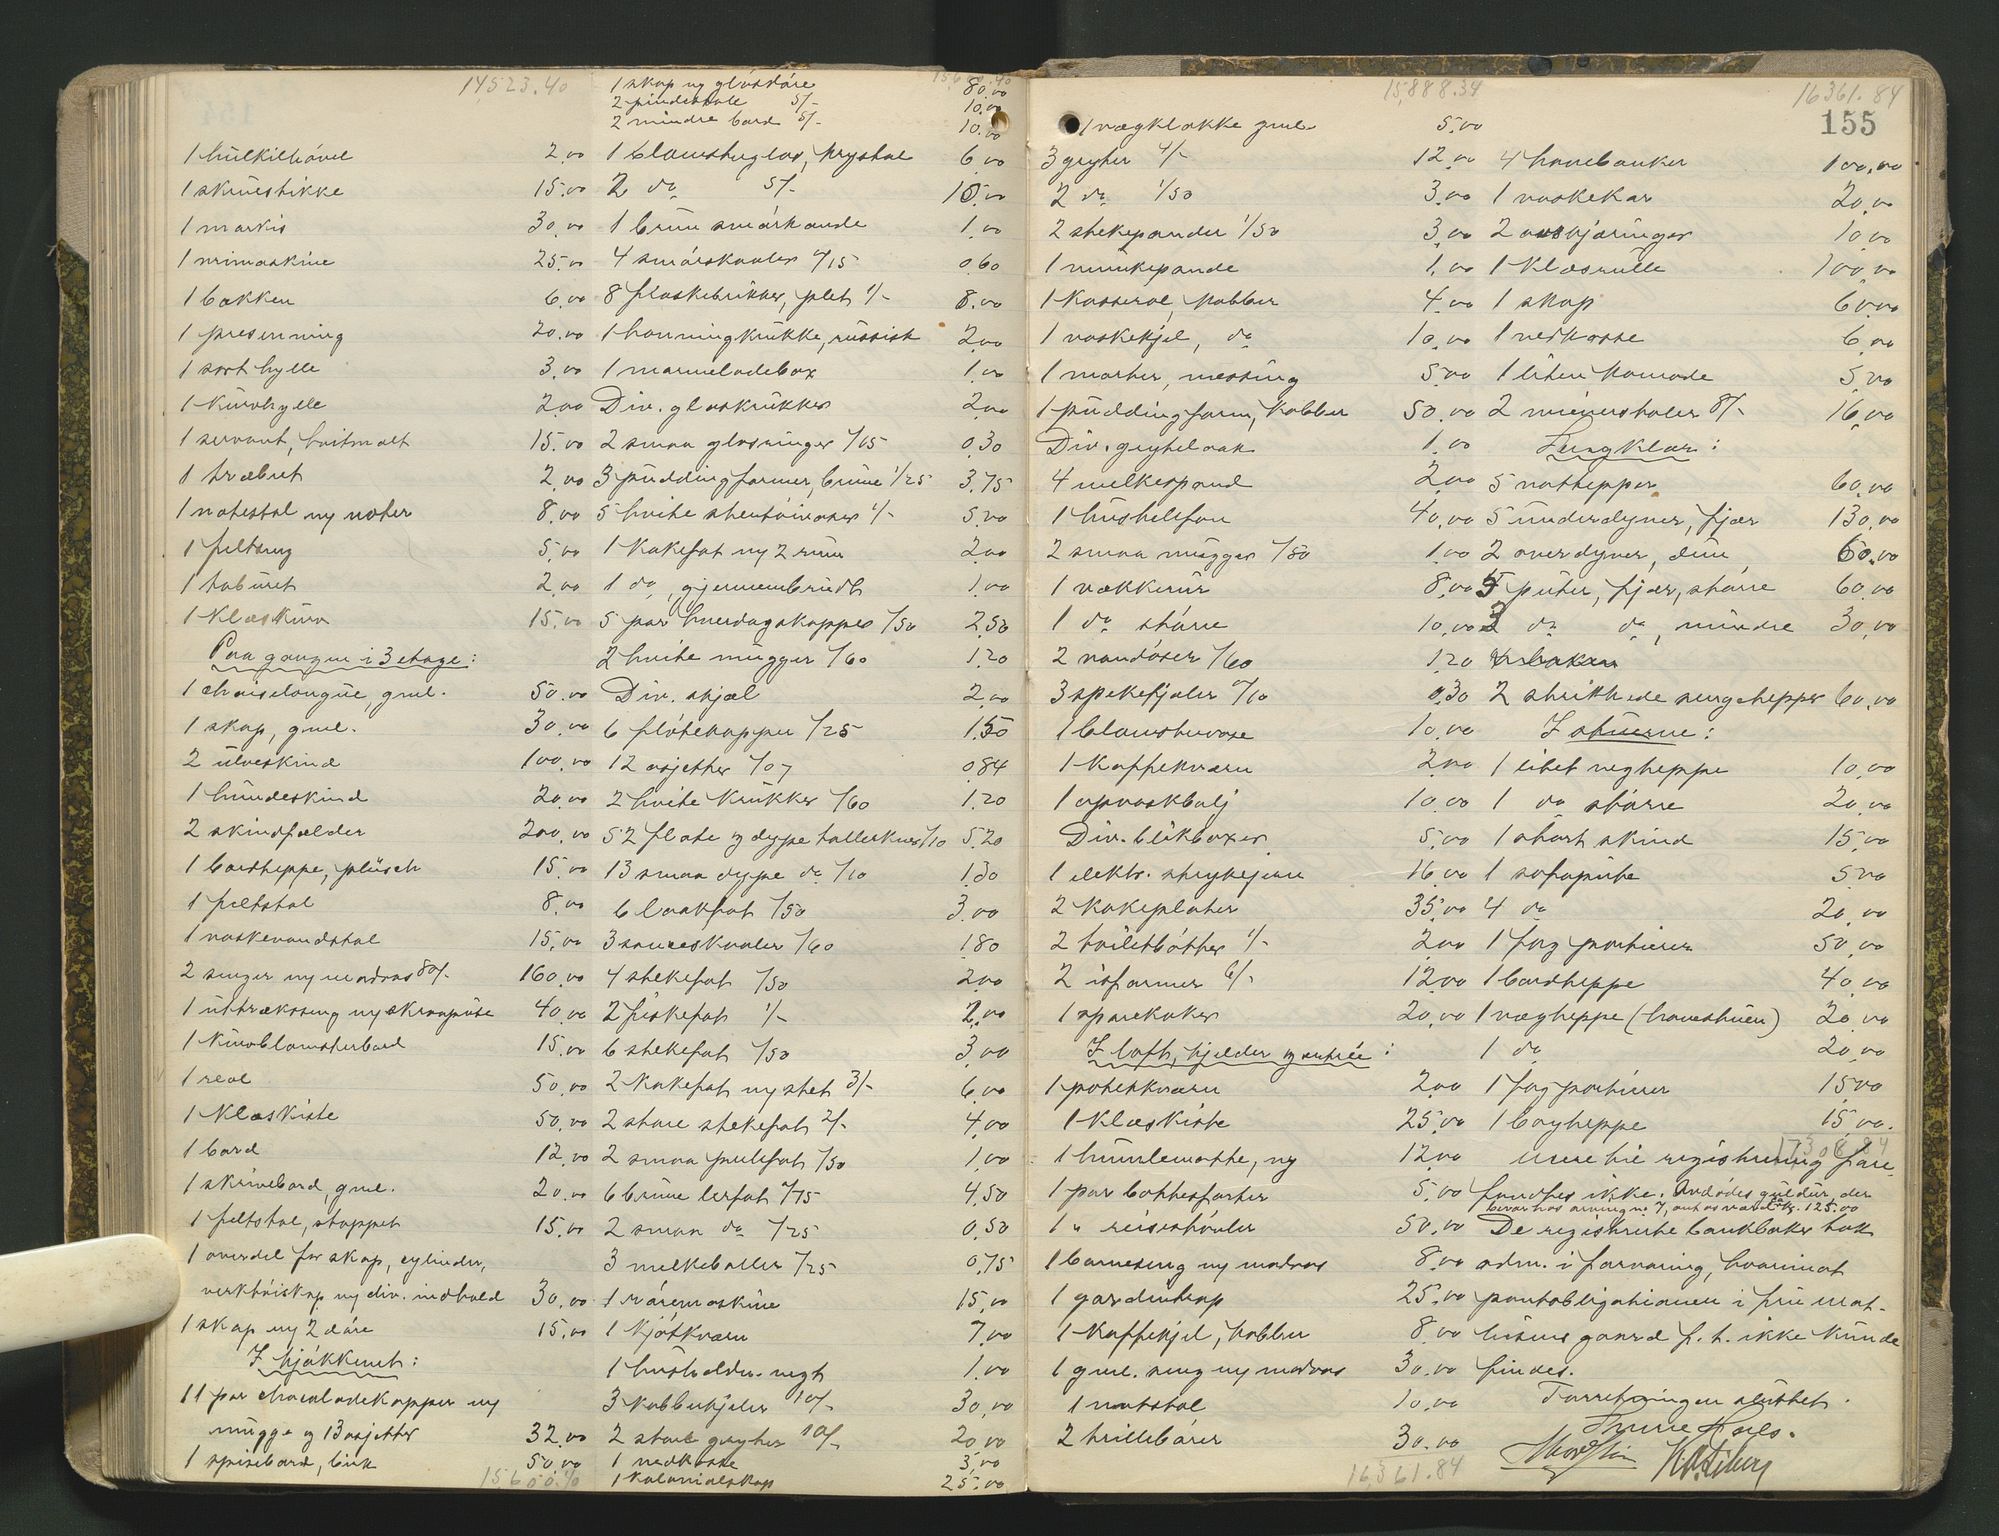 14,523.40
1 hulkilhövel 2.00
1 skruestikke 15.00
1 markis 30.00
1 25.00
1 bakken 6.00
1 presenning 20.00
1 sort hylle 3.00
1 kurvhylle 2.00
1 servant, hvitmalt 15.00
1 træbret 2.00
1 notestol m/ noter 8.00
1 feltseng 5.00
1 taburet 2.00
1 klæskurv 15.00
Paa gangen i 3 etage:
1 chaiselongue, gml. 50.00
1 skap, gml. 30.00
2 ulveskind 100.00
1 hundeskind 20.00
2 skindfælder 200.00
1 bordteppe, plüsch 15.00
1 feltstol 8.00
1 vaskevandstol 15.00
2 senger m/ madras 80/- 160.00
1 uttræksseng m/ skraapute 40.00
1 kurvblomsterbord 15.00
1 reol 50.00
1 klæskiste 50.00
1 bord 12.00
1 skrivebord, gml. 20.00
1 feltstol, stoppet 15.00
1 overdel for skap, cylinder,
verktöiskap m/ div. indhold 30.00
1 skap m/ 2 döre 15.00
I kjökkenet:
11 par chocoladekopper m/
mugge og 13 asjetter 32.00
1 spisebord, birk 50.00
15,600.40
1 skap m/ glasdöre 80.00
2 pindestole 5/- 10.00
2 mindre bord 5/- 10.00
1 blomsterglas, krystal 6.00
2 do 5/- 10.00
1 brun smörkande 1.00
4 smörskaaler -/15 0.60
8 flaskebrikker, plet 1/- 8.00
1 honningkrukke, russisk 2.00
1 marmeladebox 1.00
Div. glaskrukker 2.00
2 smaa glasringer -/15 0.30
3 puddingformer, brune 1/25 3.75
5 hvite stentöivaser 1/- 5.00
1 kakefat m/ 2 rum 2.00
1 do, gjennembrudt 1.00
5 par hverdagskopper -/50 2.50
2 hvite mugger -/60 1.20
Div. skjæl 2.00
6 flötekopper -/25 1.50
12 asjetter -/07 0.84
2 hvite krukker -/60 1.20
52 flate og dype tallerkner -/10 5.20
13 smaa dype do -/10 1.30
6 laakfat -/50 3.00
3 sauceskaaler -/60 1.80
4 stekefat -/50 2.00
2 fiskefat 1/- 2.00
6 stekefat -/50 3.00
2 kakefat m/ stet 3/- 6.00
2 store stekefat 2/- 4.00
2 smaa -/50 1.00
6 brune lerfat -/75 4.50
2 smaa do -/25 0.50
3 melkeboller -/25 0.75
1 röremaskine 15.00
1 kjötkværn 7.00
1 husholdn. vegt 1.00
3 kobberkjeler 10/- 30.00
2 store gryter 10/- 20.00
1 vedkasse 3.00
1 kolonialskap 25.00
15,888.34
1 vægklokke gml. 5.00
3 gryter 4/- 12.00
2 do 1/50 3.00
2 stekepander 1/50 3.00
1 munkepande 1.00
1 kasserol, kobber 4.00
1 vaskekjel, do 10.00
1 morter, messing 5.00
1 puddingform, kobber 50.00
Div. grytelaak 1.00
4 melkespand 2.00
1 hustelefon 40.00
2 smaa mugger -/50 1.00
1 vækkerur 8.00
1 do större 10.00
2 vandöser -/60 1.20
3 spekefjeler -/10 0.30
1 blomstervase 10.00
1 kaffekværn 2.00
1 opvaskbalj 10.00
Div. blikboxer 5.00
1 elektr. strykejern 16.00
2 kokeplater 35.00
2 toiletbötter 1/- 2.00
2 isformer 6/- 12.00
1 sparekoker 20.00
I loft, kjelder og entrée:
1 potetkværn 2.00
1 klæskiste 25.00
1 humlematte, ny 12.00
1 par 5.00
1 " reisestövler 50.00
1 barneseng m/ madras 8.00
1 gardintrap 25.00
1 kaffekjel, kobber 8.00
1 gml. seng m/ madras 30.00
1 natstol 10.00
2 trillebörer 30.00
16,361.84
16361.84
155
4 havebænker 100.00
1 vaskekar 20.00
2 10.00
1 klæsrulle 100.00
1 skap 60.00
1 vedkasse 6.00
1 liten komode 5.00
2 wienerstoler 8/- 16.00
Sengklær:
5 vattepper 60.00
5 underdyner, fjær 130.00
2 overdyner, dun 60.00
5 puter, fjær, större 60.00
3 do do, mindre 30.00
2 strikkede sengetepper 60.00
I stuerne:
1 litet vegteppe 10.00
1 do större 20.00
1 stort skind 15.00
1 sofapute 5.00
4 do 20.00
1 fag portierer 50.00
1 bordteppe 40.00
1 vægteppe (havestuen) 20.00
1 do 20.00
1 fag portierer 15.00
1 teppe 15.00.
17308.84
Mere til registrering fore-
fandtes ikke. Avdödes guldur, der
beror hos arving nr. 7, antas værd kr. 125.00
De registrerte bankböker tok
adm. i forvaring, hvorimot
pantobligationen i fru
gaard p.t. ikke kunde
findes.
Forretningen sluttet.